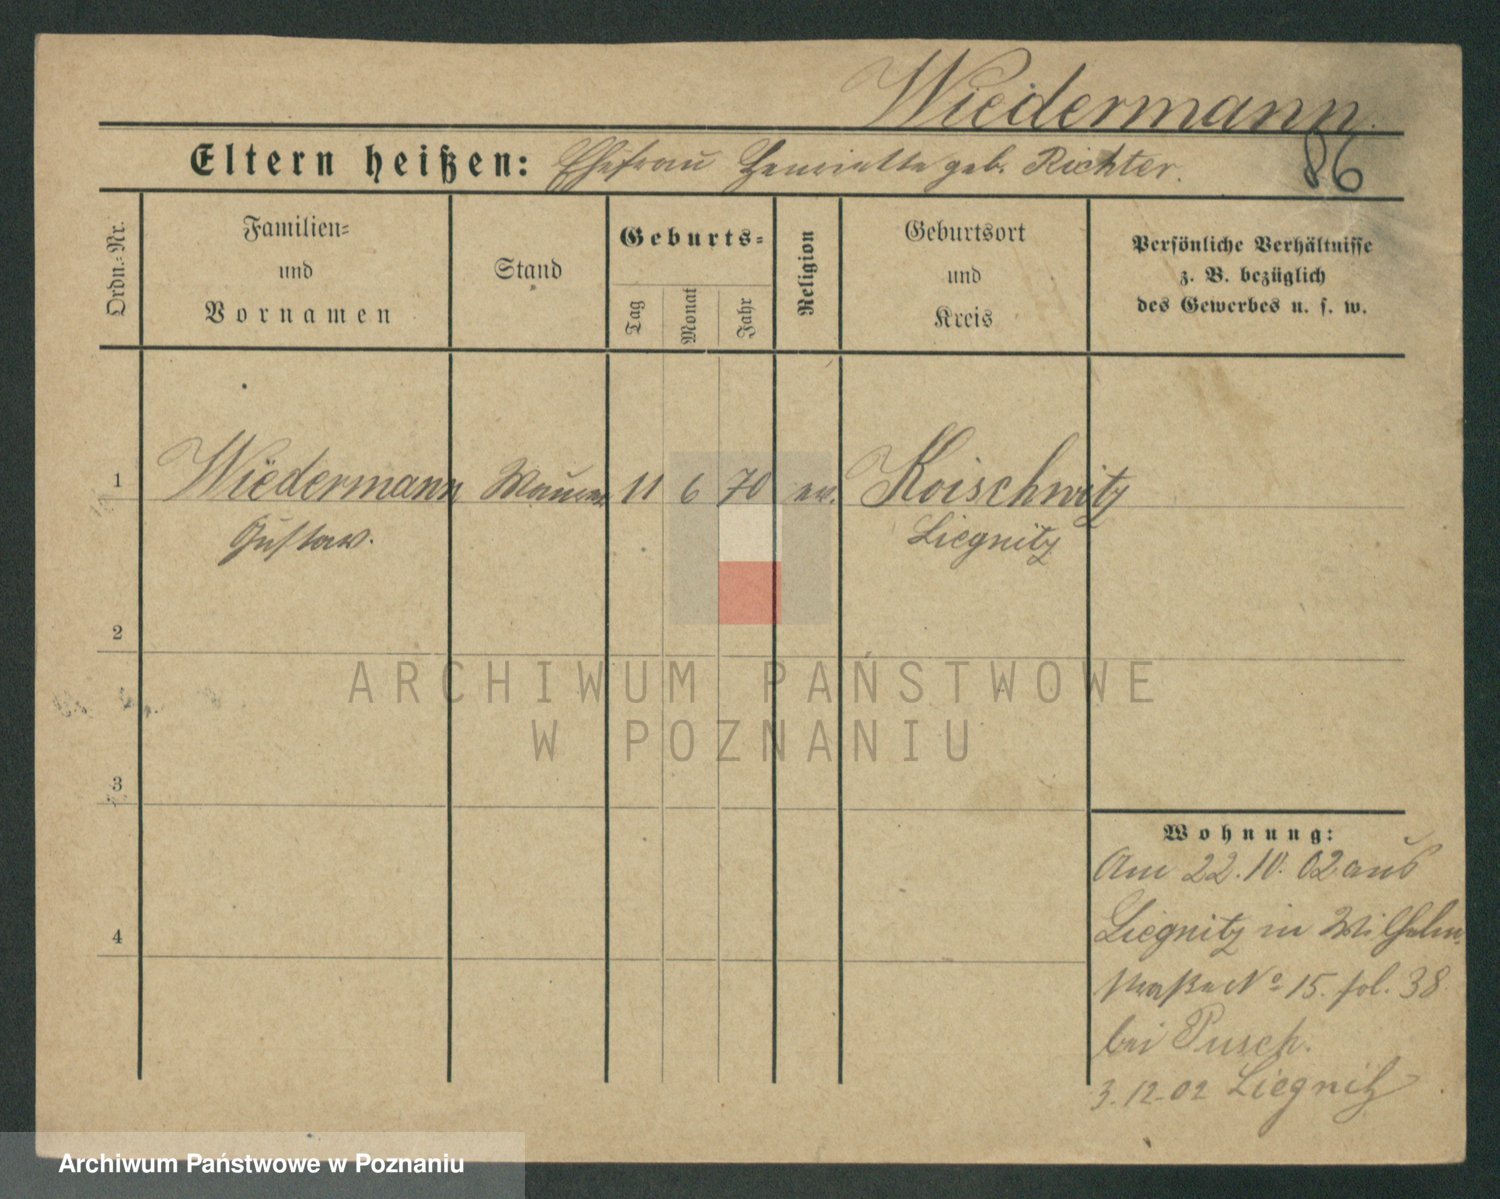 Wiedermann.
86
Eltern heißen: Ehefrau Henriette geb. Richter.
Ordn.=Nr.
Familien=
und
Vornamen
Stand
Geburts=
Tag
Monat
Jahr
Religion
Geburtsort
und
Kreis
Persönliche Verhältnisse
z. B. bezüglich
des Gewerbes u. s. w.
1 Wiedermann Maurer 11 6 70 ev. Koischwitz
Gustav. Liegnitz
2
3
4
Wohnung:
Am 22.10.02 aus
Liegnitz in Wilhelm
straße No 15. fol. 38.
bei Pusch.
3.12.02 Liegnitz
ARCHIWUM PAŃSTWOWE
W POZNANIU
Archiwum Państwowe w Poznaniu